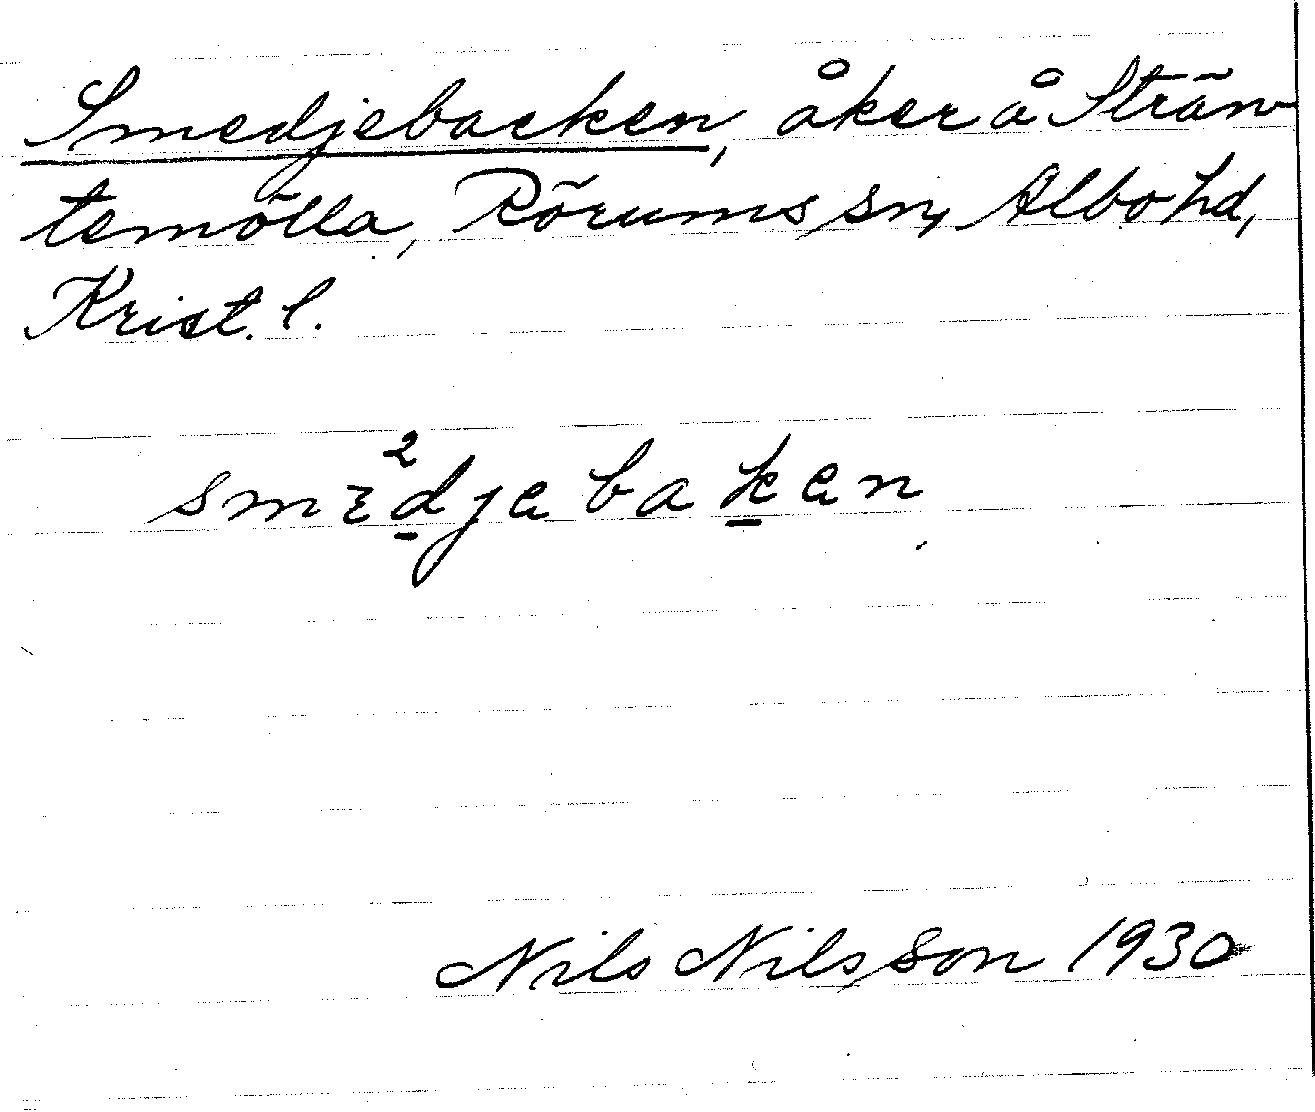 Smedjebacken, åker å Strän-
temölla, Rörums sn, Albo hd,
Krist. l.
smɛ²d̠jebak̠en
Nils Nilsson 1930